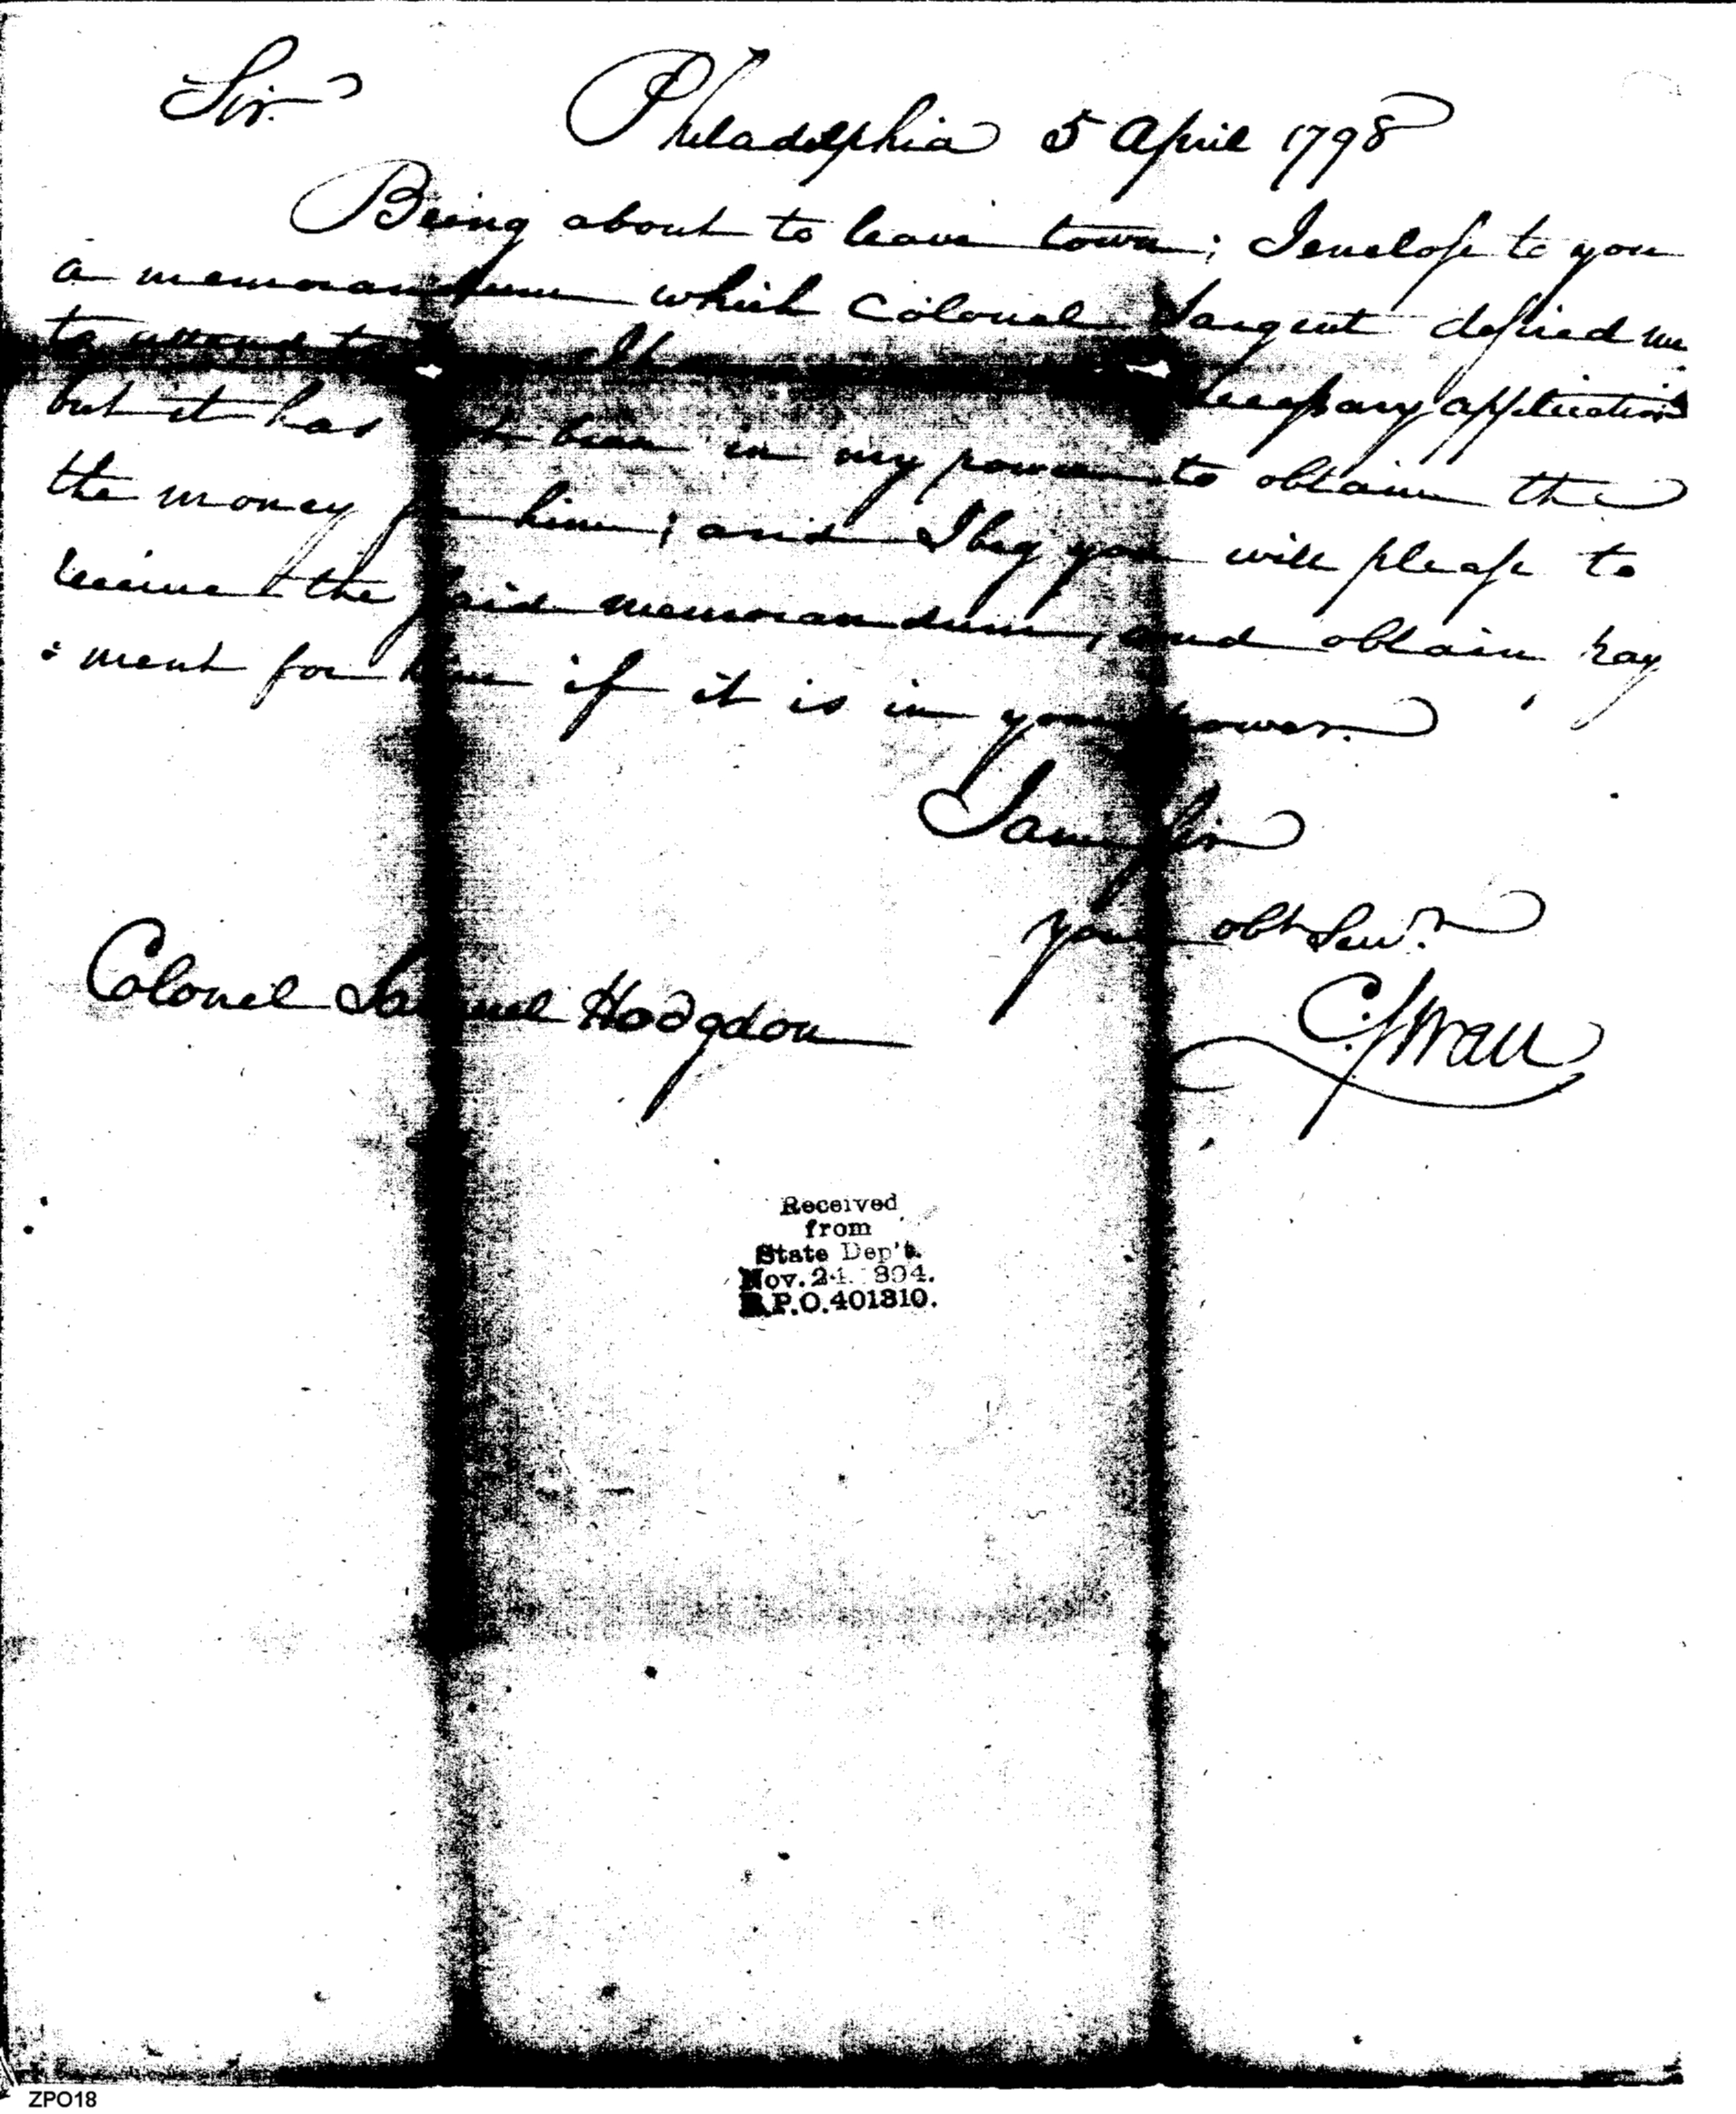 Sir. Philadelphia 5 April 1798
Being about to leave town; I inclose to you
a memorandum which Colonel Sargent desired me
to attend to necessary application
but it has not been in my power to obtain the
the money for him; and I beg you will please to
receive the said memorandum, and obtain pay
: ment for him if it is in your power.
I am Sir
your obt. Servt.
C. Swan
Colonel Samuel Hodgdon
Received
from
State Dep't.
Nov. 24. 1894.
R.P.O. 401310.
ZPO18